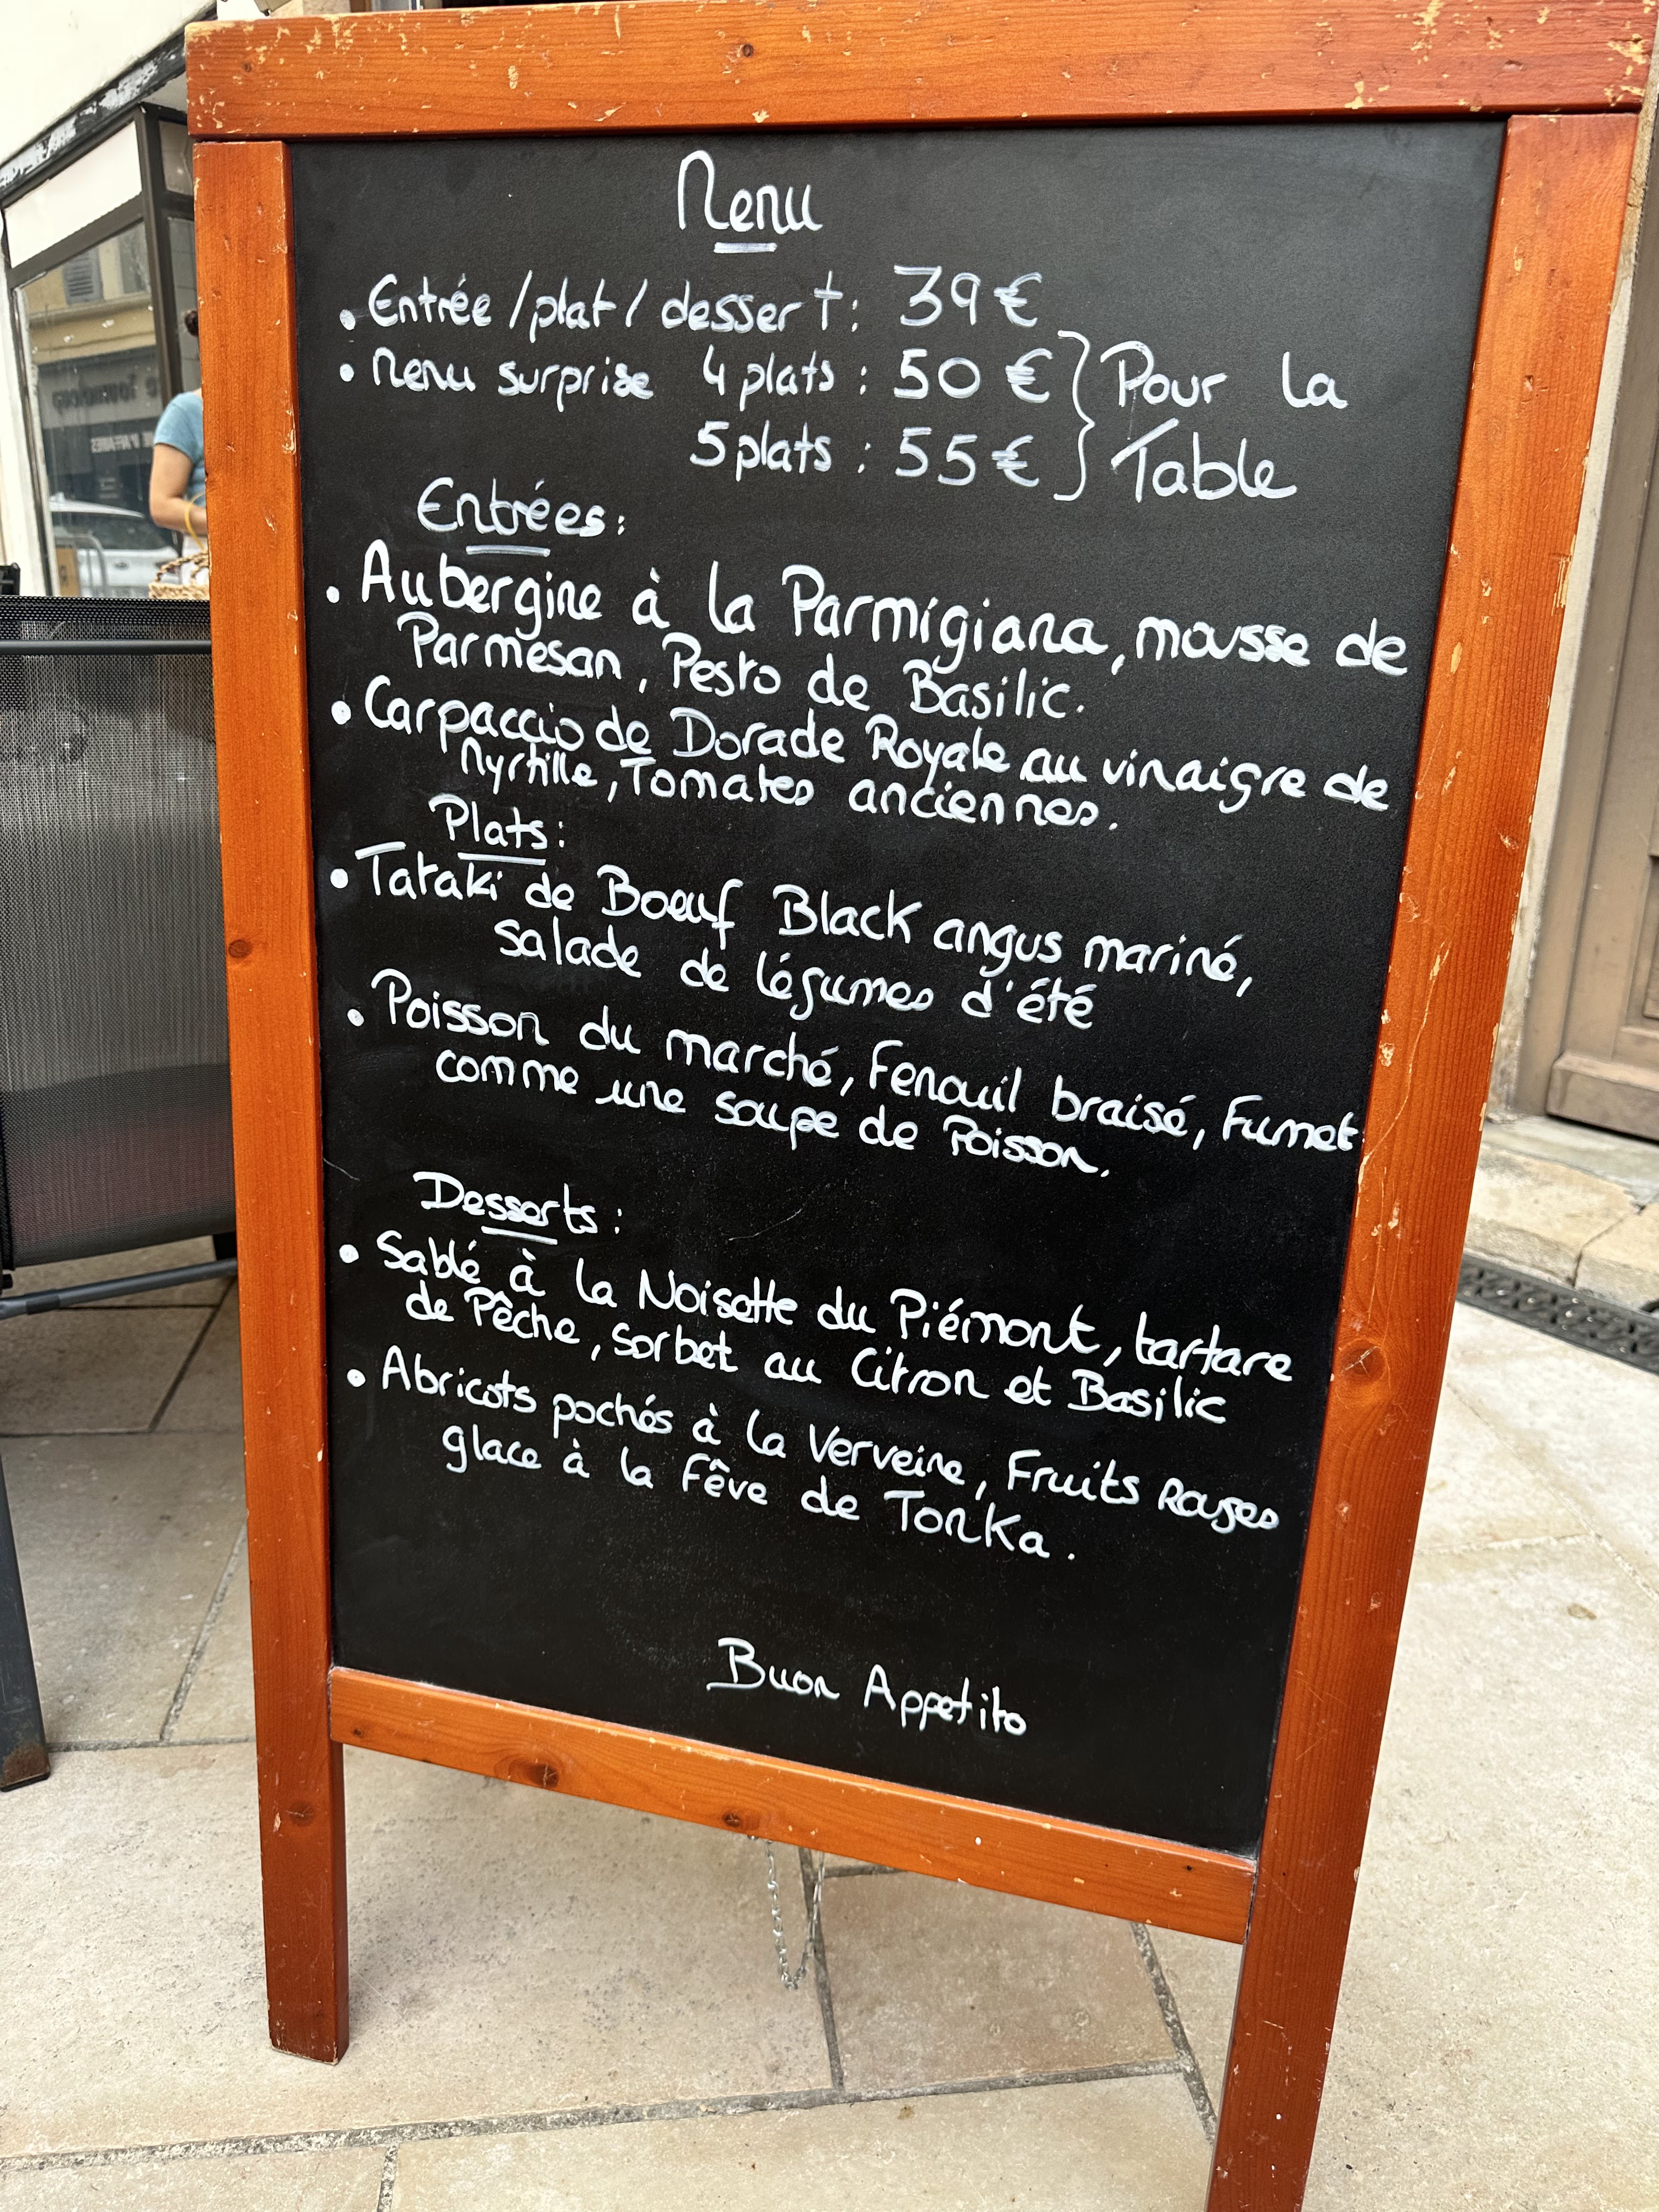 Menu
• Entrée / plat / dessert : 39 €
• Menu surprise 4 plats : 50 € } Pour la
5 plats : 55 € } Table
Entrées :
• Aubergine à la Parmigiana, mousse de
Parmesan, Pesto de Basilic.
• Carpaccio de Dorade Royale au vinaigre de
Myrtille, Tomates anciennes.
Plats :
• Tataki de Boeuf Black angus mariné,
salade de légumes d'été
• Poisson du marché, Fenouil braisé, Fumet
comme une soupe de Poisson.
Desserts :
• Sablé à la Noisette du Piémont, tartare
de Pêche, sorbet au Citron et Basilic
• Abricots pochés à la Verveine, Fruits Rouges
glace à la Fêve de Tonka.
Buon Appetito